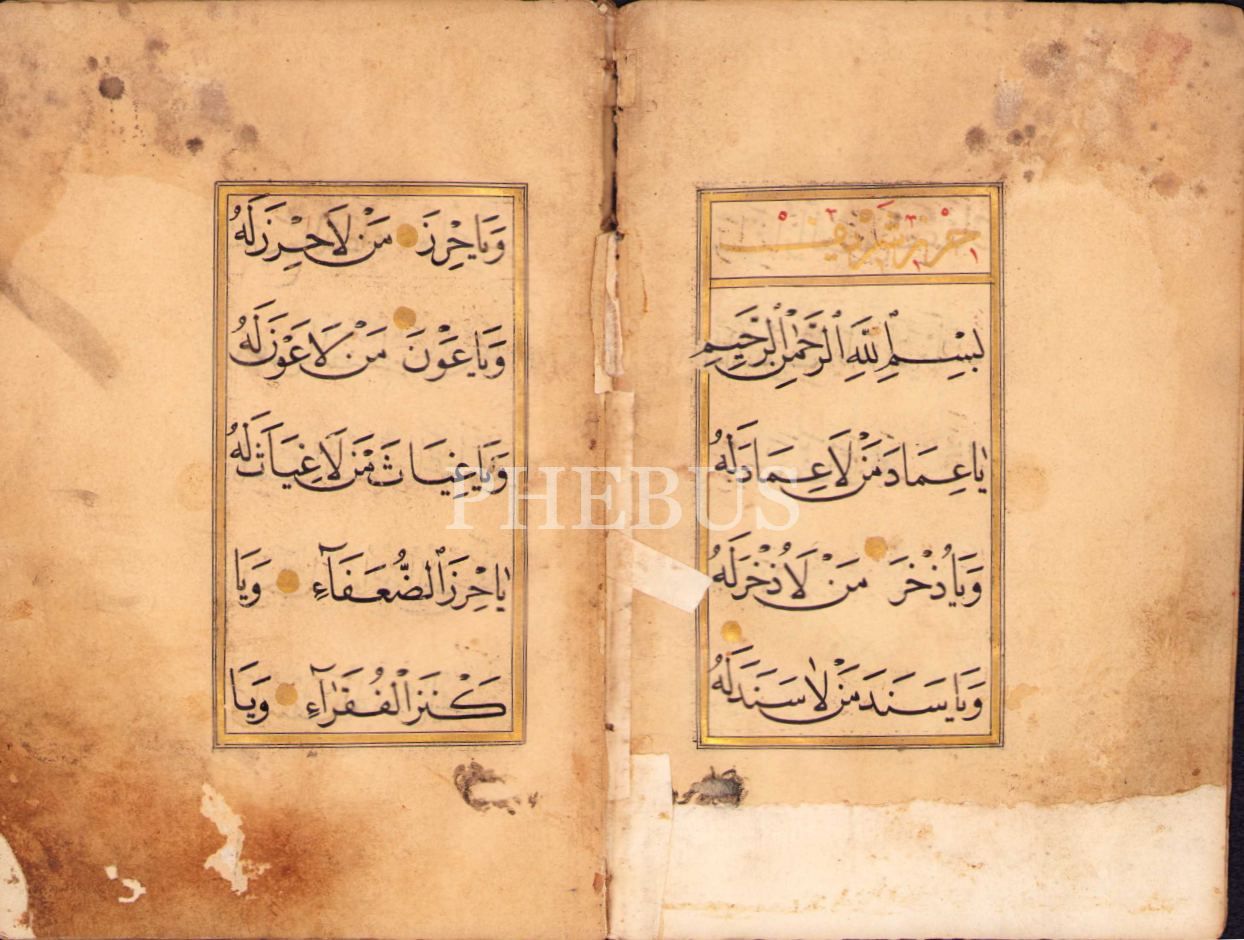 حرز شريف
بِسْمِ اللَّهِ الرَّحْمٰنِ الرَّحِيمِ
يَا عِمَادَ مَنْ لَا عِمَادَ لَهُ
وَيَا ذُخْرَ مَنْ لَا ذُخْرَ لَهُ
وَيَا سَنَدَ مَنْ لَا سَنَدَ لَهُ
وَيَا حِرْزَ مَنْ لَا حِرْزَ لَهُ
وَيَا عَوْنَ مَنْ لَا عَوْنَ لَهُ
وَيَا غِيَاثَ مَنْ لَا غِيَاثَ لَهُ
يَا حِرْزَ الضُّعَفَآءِ وَيَا
كَنْزَ الْفُقَرَآءِ وَيَا
PHEBUS